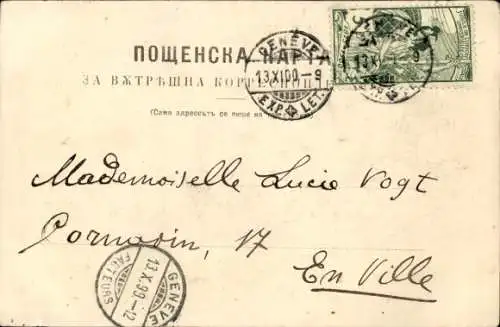 ПОЩЕНСКА КАРТА
ЗА ВѪТРѢШНА КОРРЕСП
(Само адресътъ се пише на
GENÈVE
13.XI.00-9
EXP. LET.
13.XI
-9
EXP.
Mademoiselle Lucie Vogt
Cornavin, 17
En Ville
GENÈVE
13.X.99-12
FACTEURS